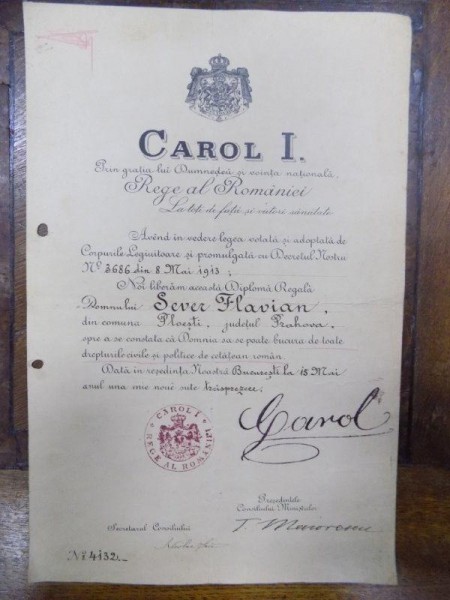 CAROL I.
Prin grația lui Dumnedeă și voința națională,
Rege al României
La toți de față și viitori sănătate
Având în vedere legea votată și adoptată de
Corpurile Legiuitoare și promulgată cu Decretul Nostru
Nº 3686 din 8 Mai 1913;
Noi liberăm această Diplomă Regală
Domnului Sever Flavian,
din comuna Ploești, județul Prahova,
spre a se constata că Domnia sa se poate bucura de toate
drepturile civile și politice de cetățean român.
Dată în reședința Noastră București la 15 Mai
anul una mie nouă sute trăsprezece.
CAROL I
REGE AL ROMÂNIEI
Carol
Președintele
Consiliului Miniștrilor
Secretarul Consiliului
T. Maiorescu
Nº 4132